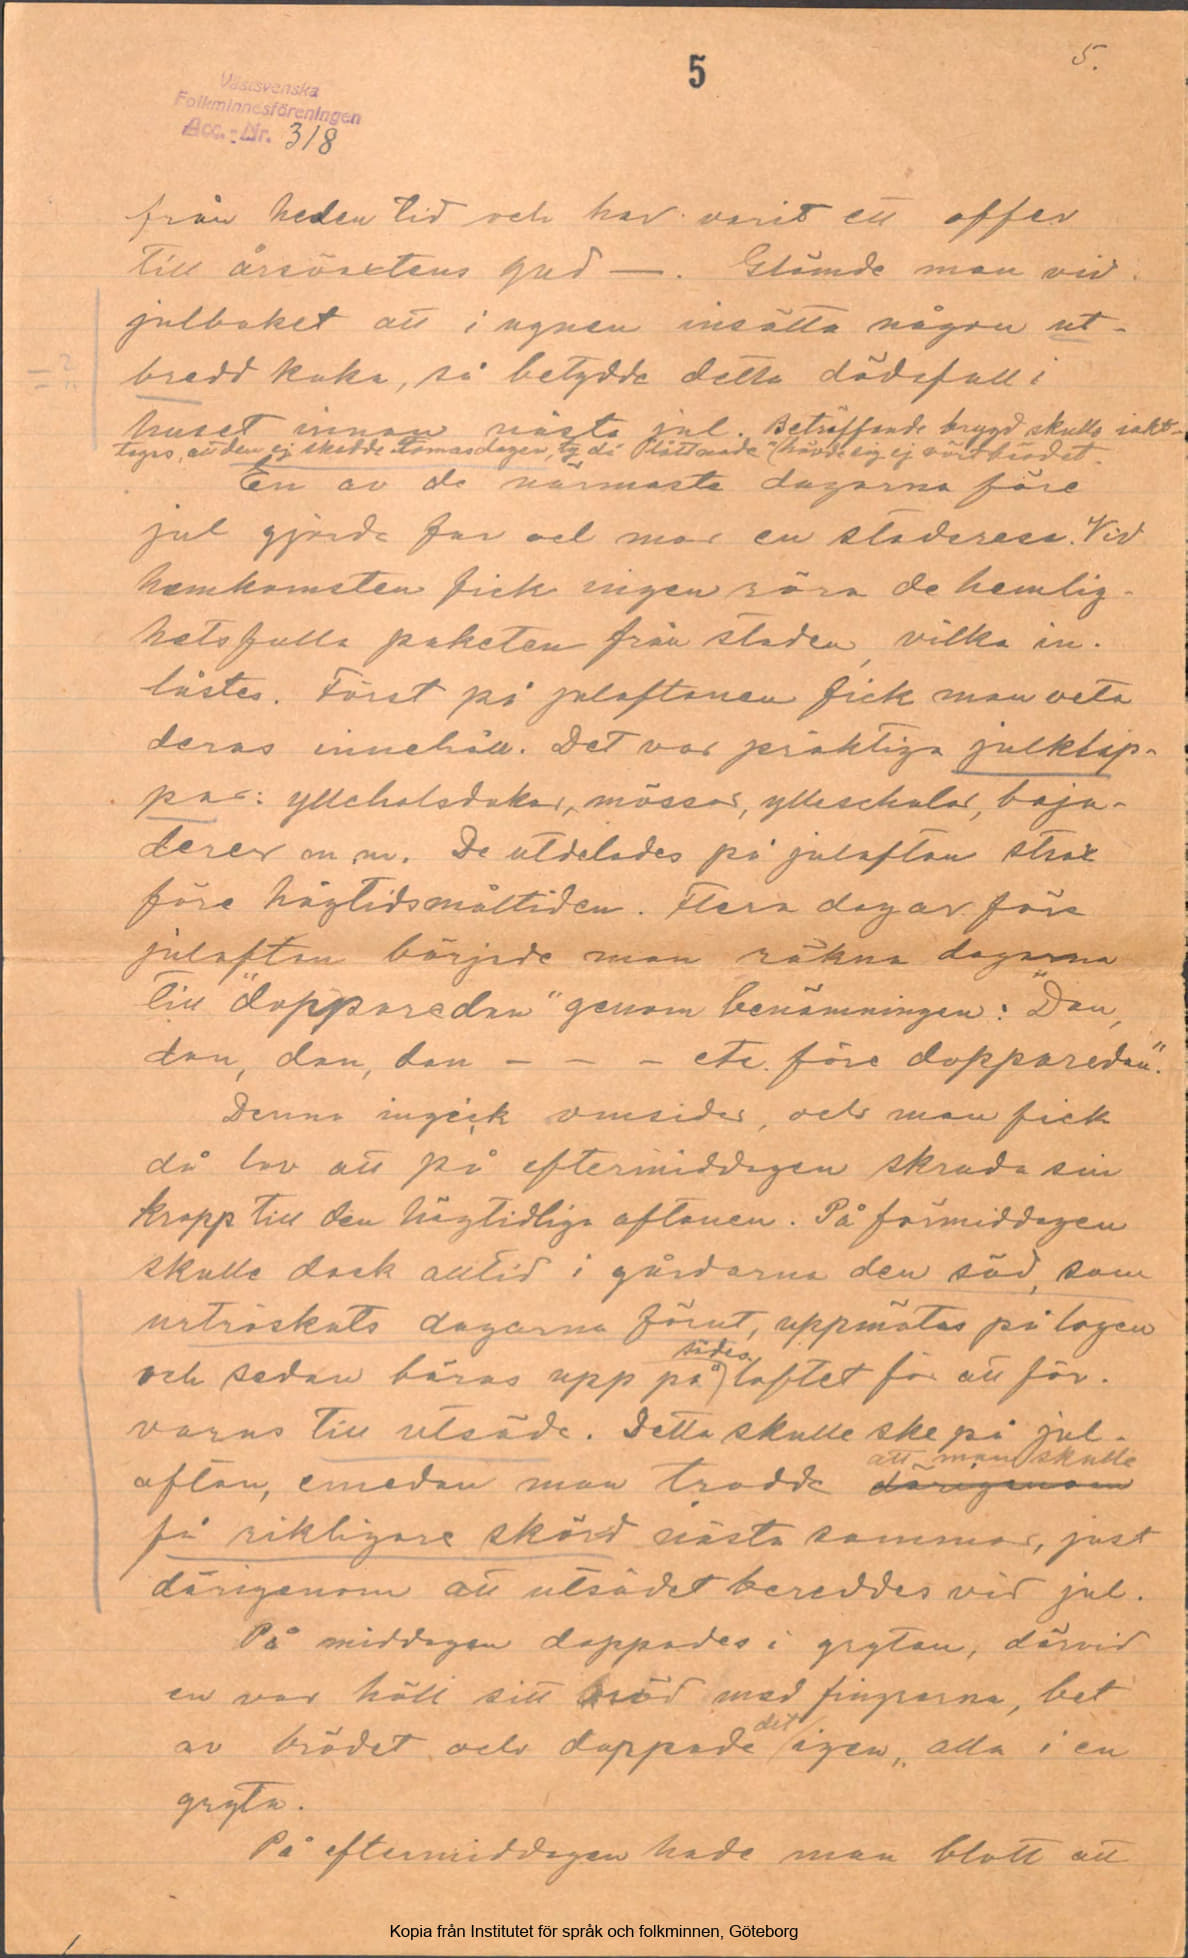 5
5.
Västsvenska
Folkminnesföreningen
Acc.-Nr. 318
från heden tid och har varit ett offer
till årsväxtens gud —. Glömde man vid
julbaket att i ugnen insätta någon ut-
bredd kaka, så betydde detta dödsfall i
huset innan nästa jul. Beträffande brygd skulle iakt-
tagas, att den ej skedde Tomasdagen, ty då
En av de närmaste dagarna före
jul gjorde far och mor en stadsresa. Vid
hemkomsten fick ingen röra de hemlig-
hetsfulla paketen från staden, vilka in-
låstes. Först på julaftonen fick man veta
deras innehåll. Det var präktiga julklap-
par: yllehalsdukar, mössor, ylleschalar, baja-
derer m.m. De utdelades på julafton strax
före högtidsmåltiden. Flera dagar före
julafton började man räkna dagarna
till "dopparedan" genom benämningen: "Dan,
dan, dan, dan – – – etc. före dopparedan".
Denna ingick omsider, och man fick
då lov att på eftermiddagen skruda sin
kropp till den högtidliga aftonen. På förmiddagen
skulle dock alltid i gårdarna den säd, som
urtröskats dagarna förut, uppmätas på logen
och sedan bäras upp på sädesloftet för att för-
varas till utsäde. Detta skulle ske på jul-
afton, emedan man trodde därigenom att man skulle
få rikligare skörd nästa sommar, just
därigenom att utsädet bereddes vid jul.
På middagen doppades i grytan, därvid
en var höll sitt bröd med fingrarna, bet
av brödet och doppade det igen, alla i en
gryta.
På eftermiddagen hade man blott att
Kopia från Institutet för språk och folkminnen, Göteborg